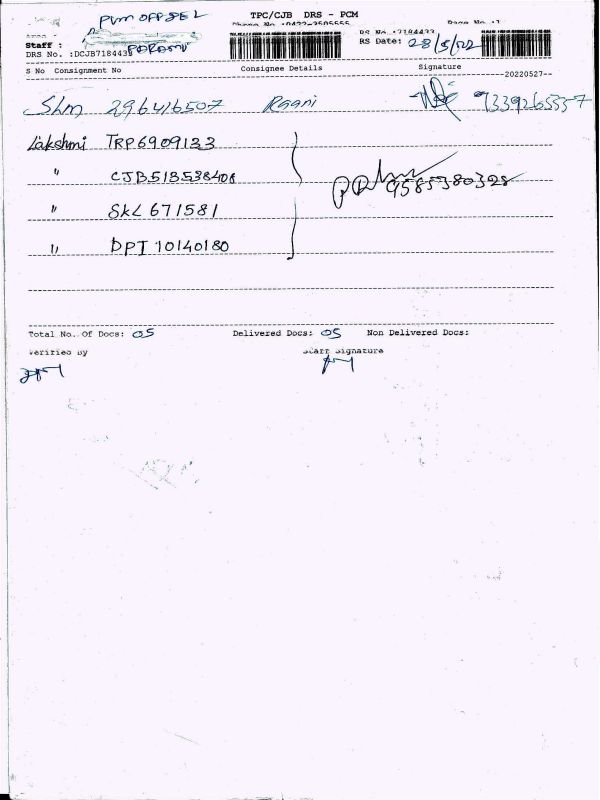 PVM OFFSET TPC/CJB DRS - PCM Page No.:1
Phone No.:0422-3505555
Staff : PARAMU RS No.:7184433
DRS No. :DCJB7184433 RS Date: 28/5/22
S No Consignment No Consignee Details Signature
20220527--
Slm 296416507 Raani 9339265557
Lakshmi TRP6909133
" CJB513538408 9585980328
" SKL 671581
" DPI 10140180
Total No. Of Docs: 05 Delivered Docs: 05 Non Delivered Docs:
Verified By Staff Signature